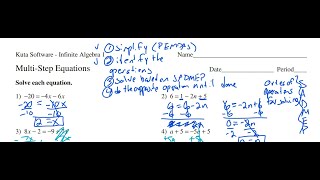 Kuta Software - Infinite Algebra
Name
Multi-Step Equations
Date
Period
Solve each equation.
1) simplify (PEMDAS)
2) identify the
operations
3) solve based on SADMEP
4) do the opposite operation until done
order of
operations
for solving
SADMEP
1) -20 = -4x - 6x
-20 = -10x
-10 -10
2 = x
2) 6 = 1 - 2n + 5
6 = 6 - 2n
-6 -6
6 = -2n + 6
-6 -6
0 = -2n
-2 -2
3) 8x - 2 = -9
4) a + 5 = -5a + 5